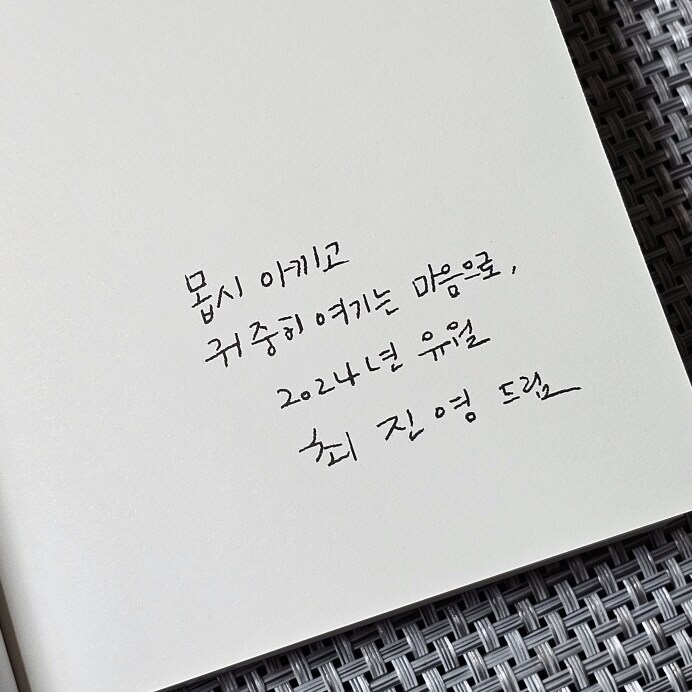 몹시 아끼고
귀중히 여기는 마음으로,
2024년 유월
최진영 드림